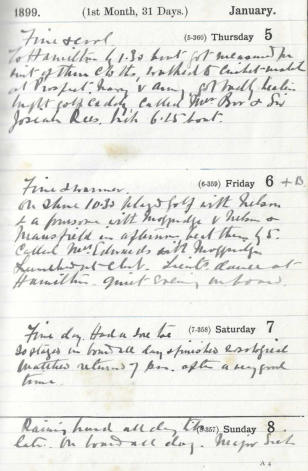 1899. (1st Month, 31 Days.) January.
(5-360) Thursday 5
Fine & cool
To Hamilton by 1.30 boat got measured for
suit of there Cloths, walked to Cricket match
at Prospect. Navy v Army, got
Caddy. Called Mrs & Sir
Josiah Rees. 6.15 boat.
(6-359) Friday 6
Fine & warmer.
On shore 10.30 played golf with Nelson
& a foursome with Moggridge & Nelson &
Mansfield in afternoon beat them by 5.
Called Mrs Edwards with Moggridge
Lunched at Club. dance at
Hamilton. Quiet Evening on board.
(7-358) Saturday 7
Fine day. Had a sore toe
so stayed in board all day & finished
returned 7 p.m. after a very good
time.
(8-357) Sunday 8
Raining hard all day till
late. On board all day. Major
A 4